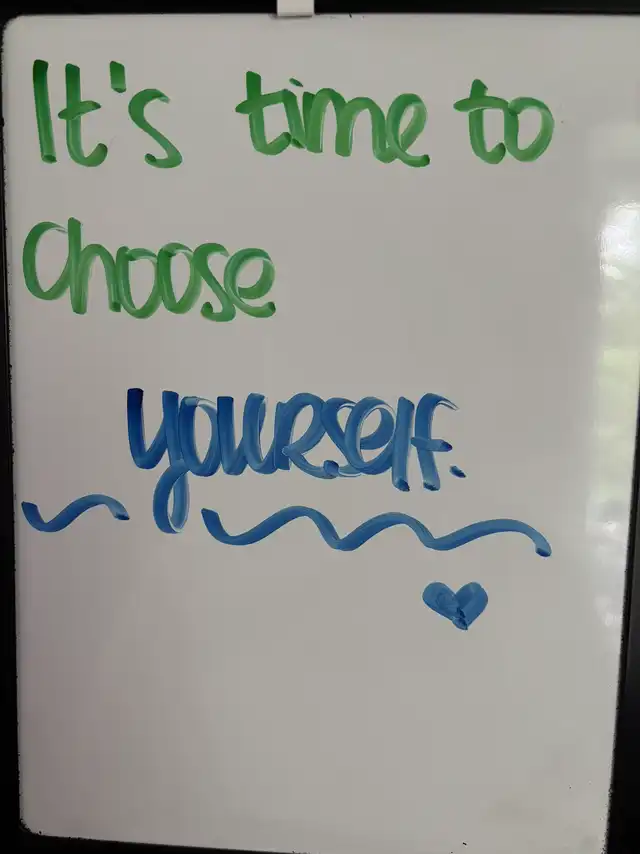 It's time to
choose
yourself.